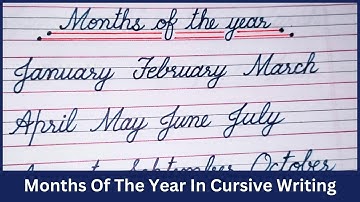 Months of the year
January February March
April May June July
September October
Months Of The Year In Cursive Writing